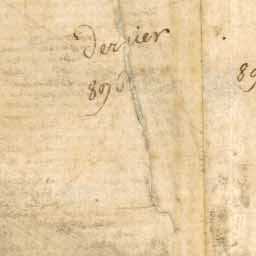 dernier
890
89